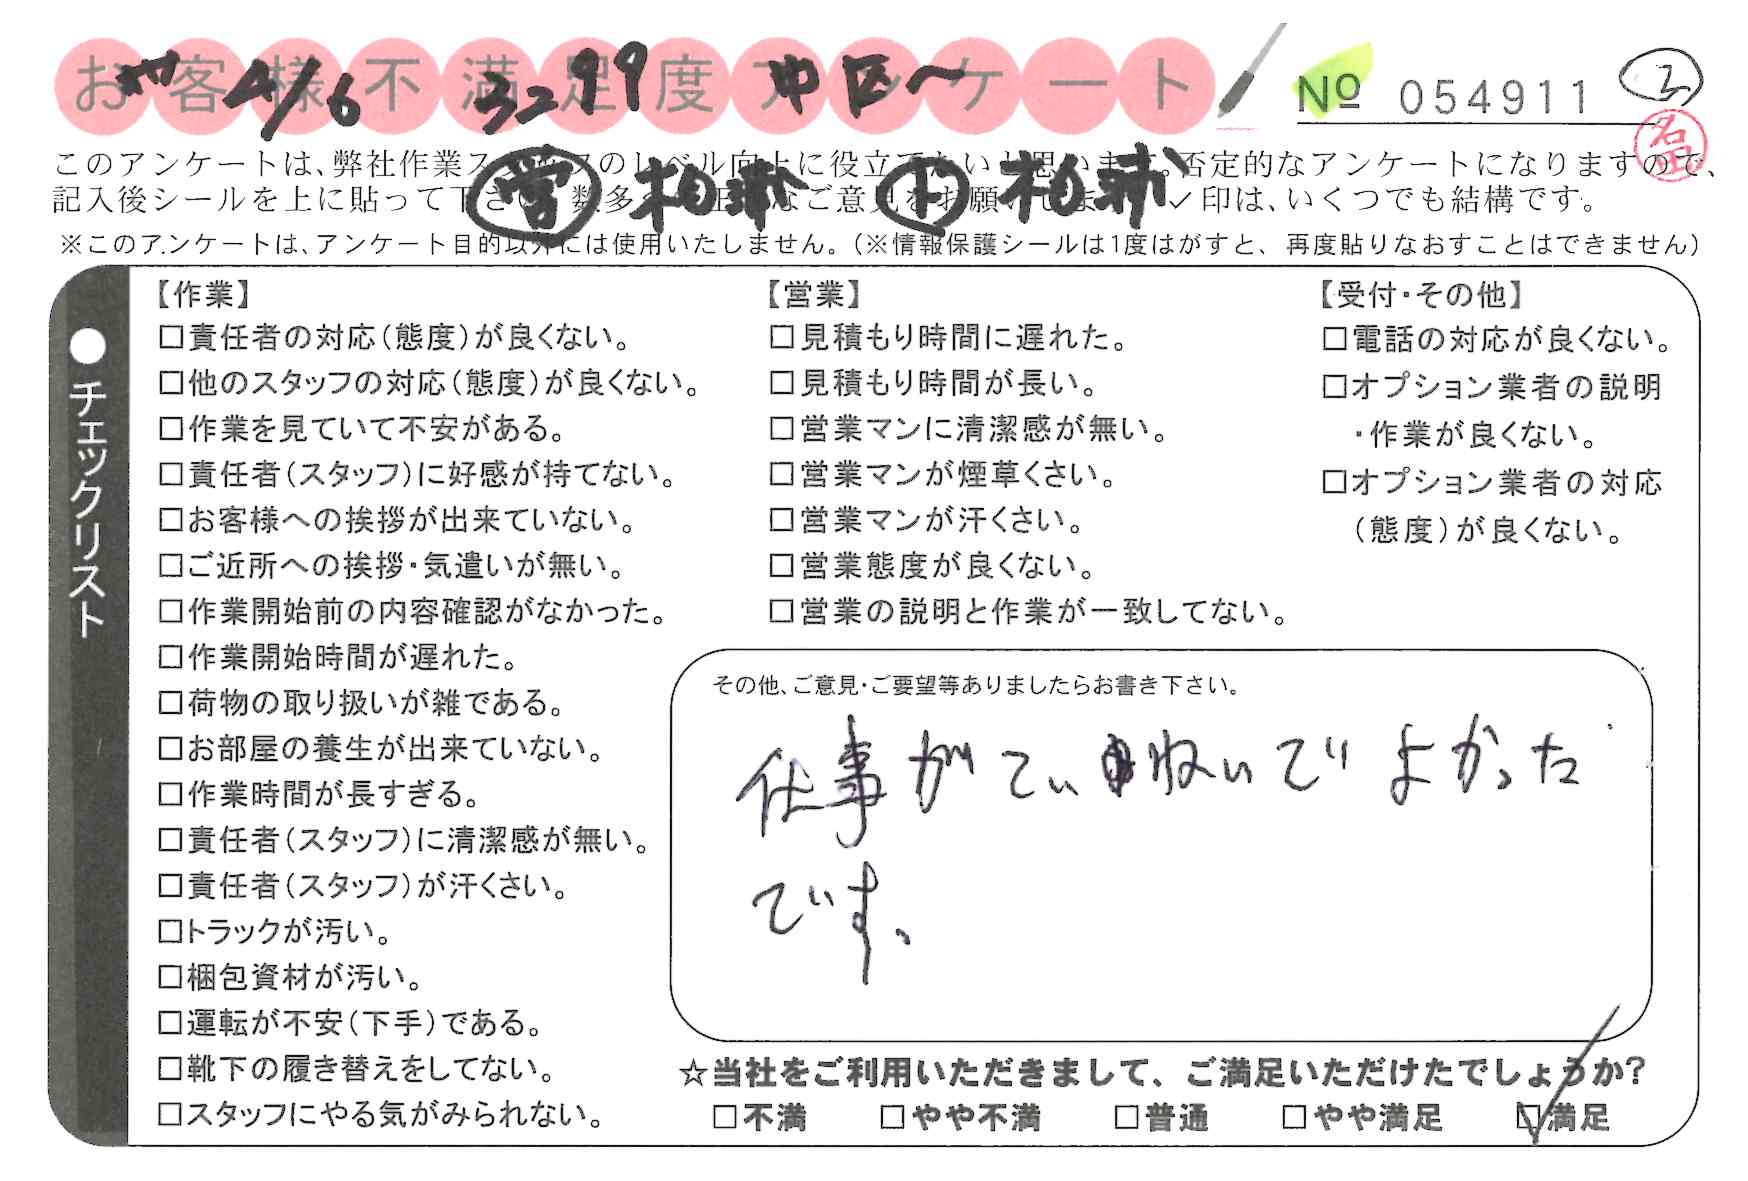 お客様不満足度アンケート
4/6 3299 中区〜
№ 054911
名田
このアンケートは、弊社作業スタッフのレベル向上に役立てたいと思います。否定的なアンケートになりますので、
記入後シールを上に貼って下さい。数多くの正直なご意見をお願いします。✓印は、いくつでも結構です。
営 ト
※このアンケートは、アンケート目的以外には使用いたしません。(※情報保護シールは1度はがすと、再度貼りなおすことはできません)
●チェックリスト
【作業】
□責任者の対応(態度)が良くない。
□他のスタッフの対応(態度)が良くない。
□作業を見ていて不安がある。
□責任者(スタッフ)に好感が持てない。
□お客様への挨拶が出来ていない。
□ご近所への挨拶・気遣いが無い。
□作業開始前の内容確認がなかった。
□作業開始時間が遅れた。
□荷物の取り扱いが雑である。
□お部屋の養生が出来ていない。
□作業時間が長すぎる。
□責任者(スタッフ)に清潔感が無い。
□責任者(スタッフ)が汗くさい。
□トラックが汚い。
□梱包資材が汚い。
□運転が不安(下手)である。
□靴下の履き替えをしてない。
□スタッフにやる気がみられない。
【営業】
□見積もり時間に遅れた。
□見積もり時間が長い。
□営業マンに清潔感が無い。
□営業マンが煙草くさい。
□営業マンが汗くさい。
□営業態度が良くない。
□営業の説明と作業が一致してない。
【受付・その他】
□電話の対応が良くない。
□オプション業者の説明
・作業が良くない。
□オプション業者の対応
(態度)が良くない。
その他、ご意見・ご要望等ありましたらお書き下さい。
仕事がていねいでよかった
です。
☆当社をご利用いただきまして、ご満足いただけたでしょうか?
□不満 □やや不満 □普通 □やや満足 ☑満足